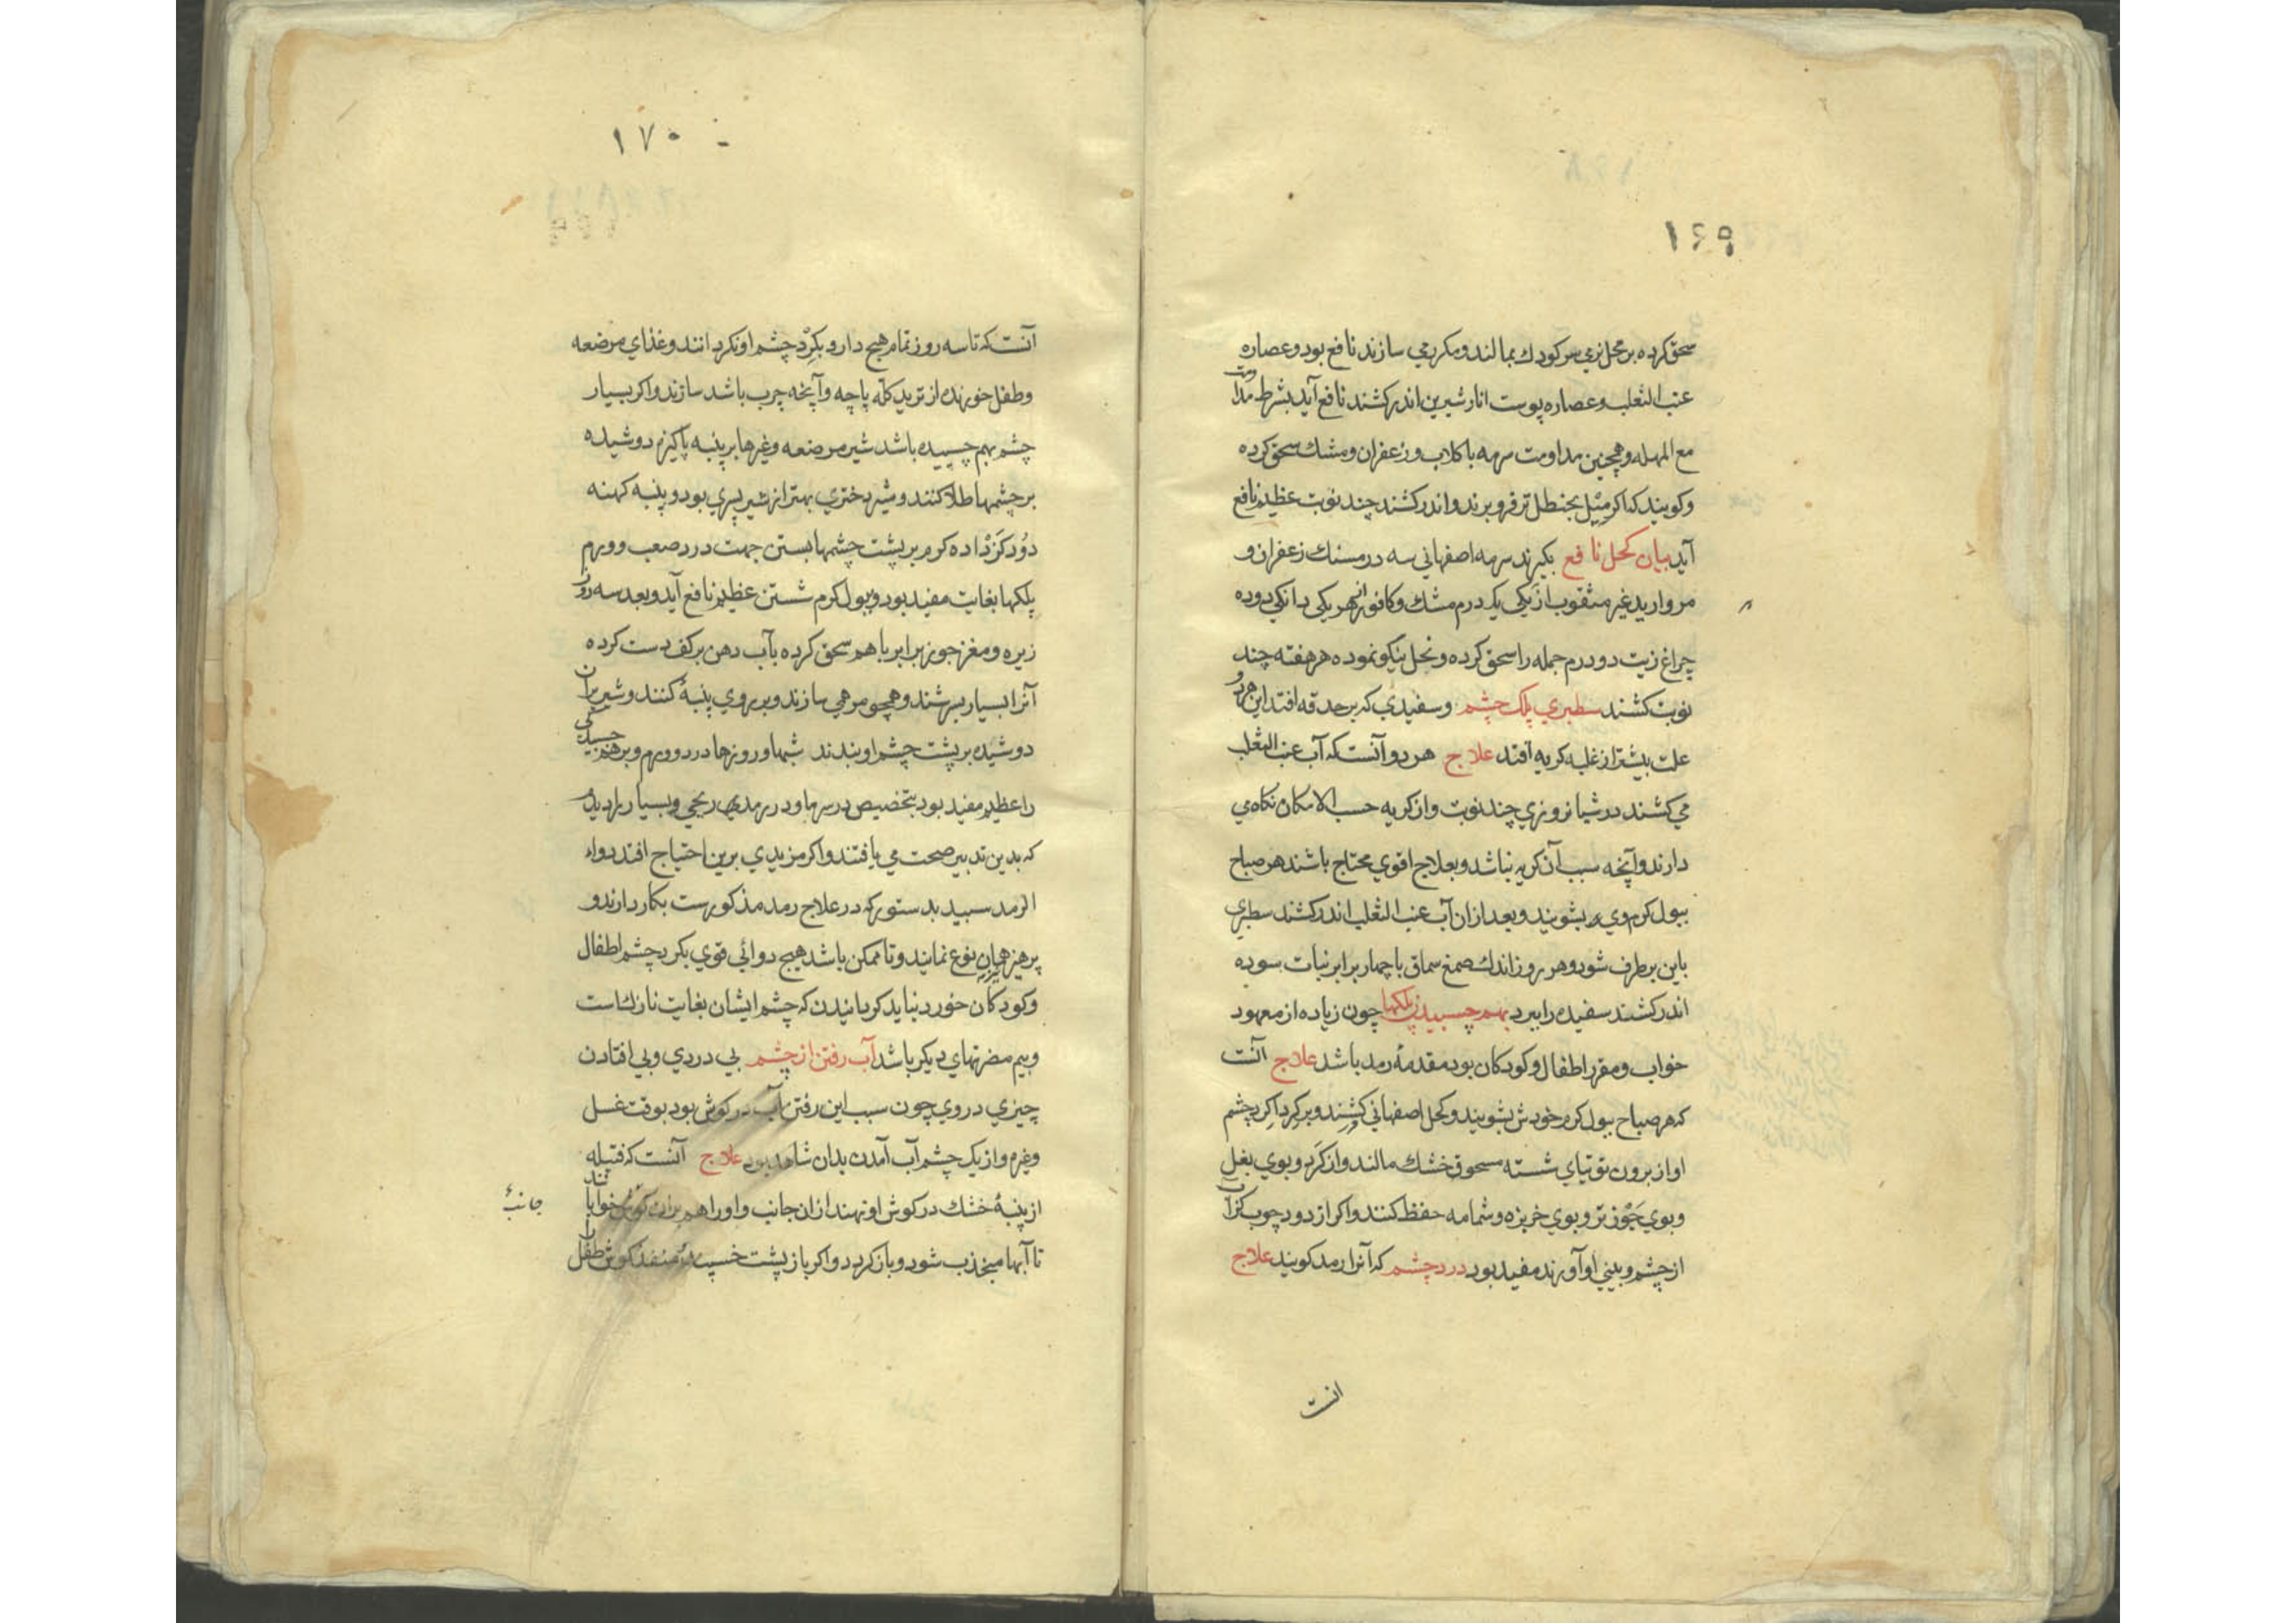 ۱۶۹
سحق کرده بر محل نرمی سر کودك بمالند و مکرر می سازند نافع بود و عصاره
عنب الثعلب و عصاره پوست انار شیرین اندر کشند نافع آید بشرط مداومت
مع المهله و همچنین مداومت سرمه با کلاب و زعفران و مشك سحق کرده
و کویند که اکر میل بحنظل تر فرو برند و اندر کشند چند نوبت عظیم نافع
آید بیان کحل نافع بکیرند سرمه اصفهانی سه درمسنك زعفران و
مروارید غیر مثقوب از یکی یکدرم مشك و کافور از هر یکی دانکی دوده
چراغ زیت دو درم جمله را سحق کرده و نخل نیکو نموده هر هفته چند
نوبت کشند سطبری پلك چشم و سفیدی که بر حدقه افتد این هر دو
علت بیشتر از غلبه کریه افتد علاج هر دو آنست که آب عنب الثعلب
می کشند در شبانروزی چند نوبت و از کریه حسب الامکان نکاه می
دارند و آنچه سبب آن کریه نباشد و بعلاج اقوی محتاج باشند هر صباح
ببول کرم وی بشویند و بعد ازان آب عنب الثعلب اندر کشند سطبری
باین بر طرف شود و هر روز اندك صمغ سماق با چهار برابر نبات سوده
اندر کشند سفیده را ببرد بهم چسبیدن پلکها چون زیاده از معهود
خواب و مقرر اطفال و کودکان بود مقدمهٔ رمد باشد علاج آنست
که هر صباح ببول کرم خودش بشویند و کحل اصفهانی کشند و بر کرداکرد چشم
او از برون توتیای شسته مسحوق خشك مالند و از کرد و بوی بغل
و بوی جوز تر و بوی خربزه و شمامه حفظ کنند و اکر از دود چوب کز آب
از چشم و بینی او آورند مفید بود درد چشم که آنرا رمد کویند علاج
انست
۱۷۰
آنست که تا سه روز تمام هیچ دارو بکرد چشم او نکردانند و غذای مرضعه
و طفل خورنده از ترید کله پاچه و آنچه چرب باشد سازند و اکر بسیار
چشم بهم چسبیده باشد شیر مرضعه و غیرها بر پنبه پاکیزه دوشیده
بر چشمها طلا کنند و شیر دختری بهتر از شیر پسری بود و پنبه کهنه
دود کز داده کرم بر پشت چشمها بستن جهت درد صعب و ورم
پلکها بغایت مفید بود و ببول کرم شستن عظیم نافع آید و بعد سه روز
زیره و مغز جوز برابر با هم سحق کرده بآب دهن بر کف دست کرده
آنرا بسیار بسرشند و همچو مرهمی سازند و بر روی پنبهٔ کنند و شیر بران
دوشیده بر پشت چشم او بندند شبها و روزها درد و ورم و برهم چسبیدگی
را عظیم مفید بود بتخصیص در سرما و در رمدی ریحی و بسیار را دیدم
که بدین تدبیر صحت می یافتند و اکر مزیدی برین احتیاج افتد دواء
الرمد سبید بدستور که در علاج رمد مذکورست بکار دارند و
پرهیز همان نوع نمایند و تا ممکن باشد هیچ دوائی قوی بکرد چشم اطفال
و کودکان خورد نباید کردانیدن که چشم ایشان بغایت نازك است
و بیم مضرتهای دیکر باشد آب رفتن از چشم بی دردی و بی افتادن
چیزی در وی چون سبب این رفتن آب در کوش بود بوقت غسل
و غیره و از یک چشم آب آمدن بدان شاهد بود علاج آنست که فتیله
از پنبهٔ خشك در کوش او نهند ازان جانب و او را هم بران کوش خوابانند
جانب
تا آبها منجذب شود و باز کردد و اکر باز پشت خسپد منفذ کوش طفل را